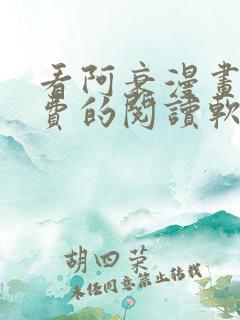 看阿衰漫畫
費的閱讀軟
胡四菜
未经同意禁止转载